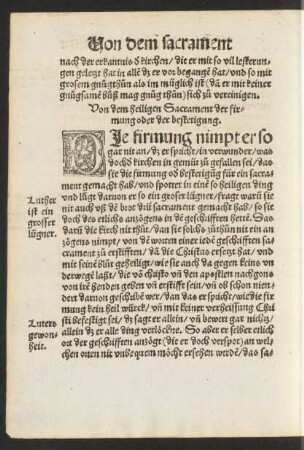 Von dem sacrament
nach der erkantnis d kirchen / die er mit so vil lesterun-
gen geletzt hat in allē dz er vor begangē hat / vnd so mit
grossem gnůgthůn als im müglich ist (da er mit keiner
gnůgsamē bůß mag gnůg thůn) sich zů vereinigen.
Von dem heiligen Sacrament der fir-
mung oder der bestetigung.
DIe firmung nimpt er so
gar nit an / dz er spricht / in verwunder / was
doch d kirchen in gemüt zů gefallen sei / das
sie die firmung od bestetigūg für ein sacra-
ment gemacht hab / vnd spottet in einē so heiligen ding
vnd lügt daruon er so ein grosser lügner / fragt warū sie
auch vß dē brot dz sacrament gemacht hab / so sie
doch des etlichs anzögens in dē geschrifften hette. Das
darū die kirch nit thůt / dan sie solchs zůthůn nit ein an
zögens nimpt / von dē worten einer iedē geschrifften sa-
crament zů erstifften / dā die Christus ersetzt hat / vnd
mit seinē thůn geheiliget / wie sie auch da gegen keins vn
derwegē laßt / die vō christo vn den apostlen nachgons
von irē henden geben vn erstifft sein / vn ob schon nien-
dert daruon geschribē wer / dan das er spricht / wie die fir
mung kein heil würck / vn mit keiner verheissung Chri
sti befestiget sei / dz sagt er allein / vn bewert gar nichtz /
allein dz er alle ding verlöcknē. So aber er selber etlich
ort der geschrifften anzögt (die er doch verspot) an wel-
chen orten nit vnbequem möcht ersehen werdē / das sa-
Luther
ist ein
grosser
lügner.
Luters
gewon-
heit.